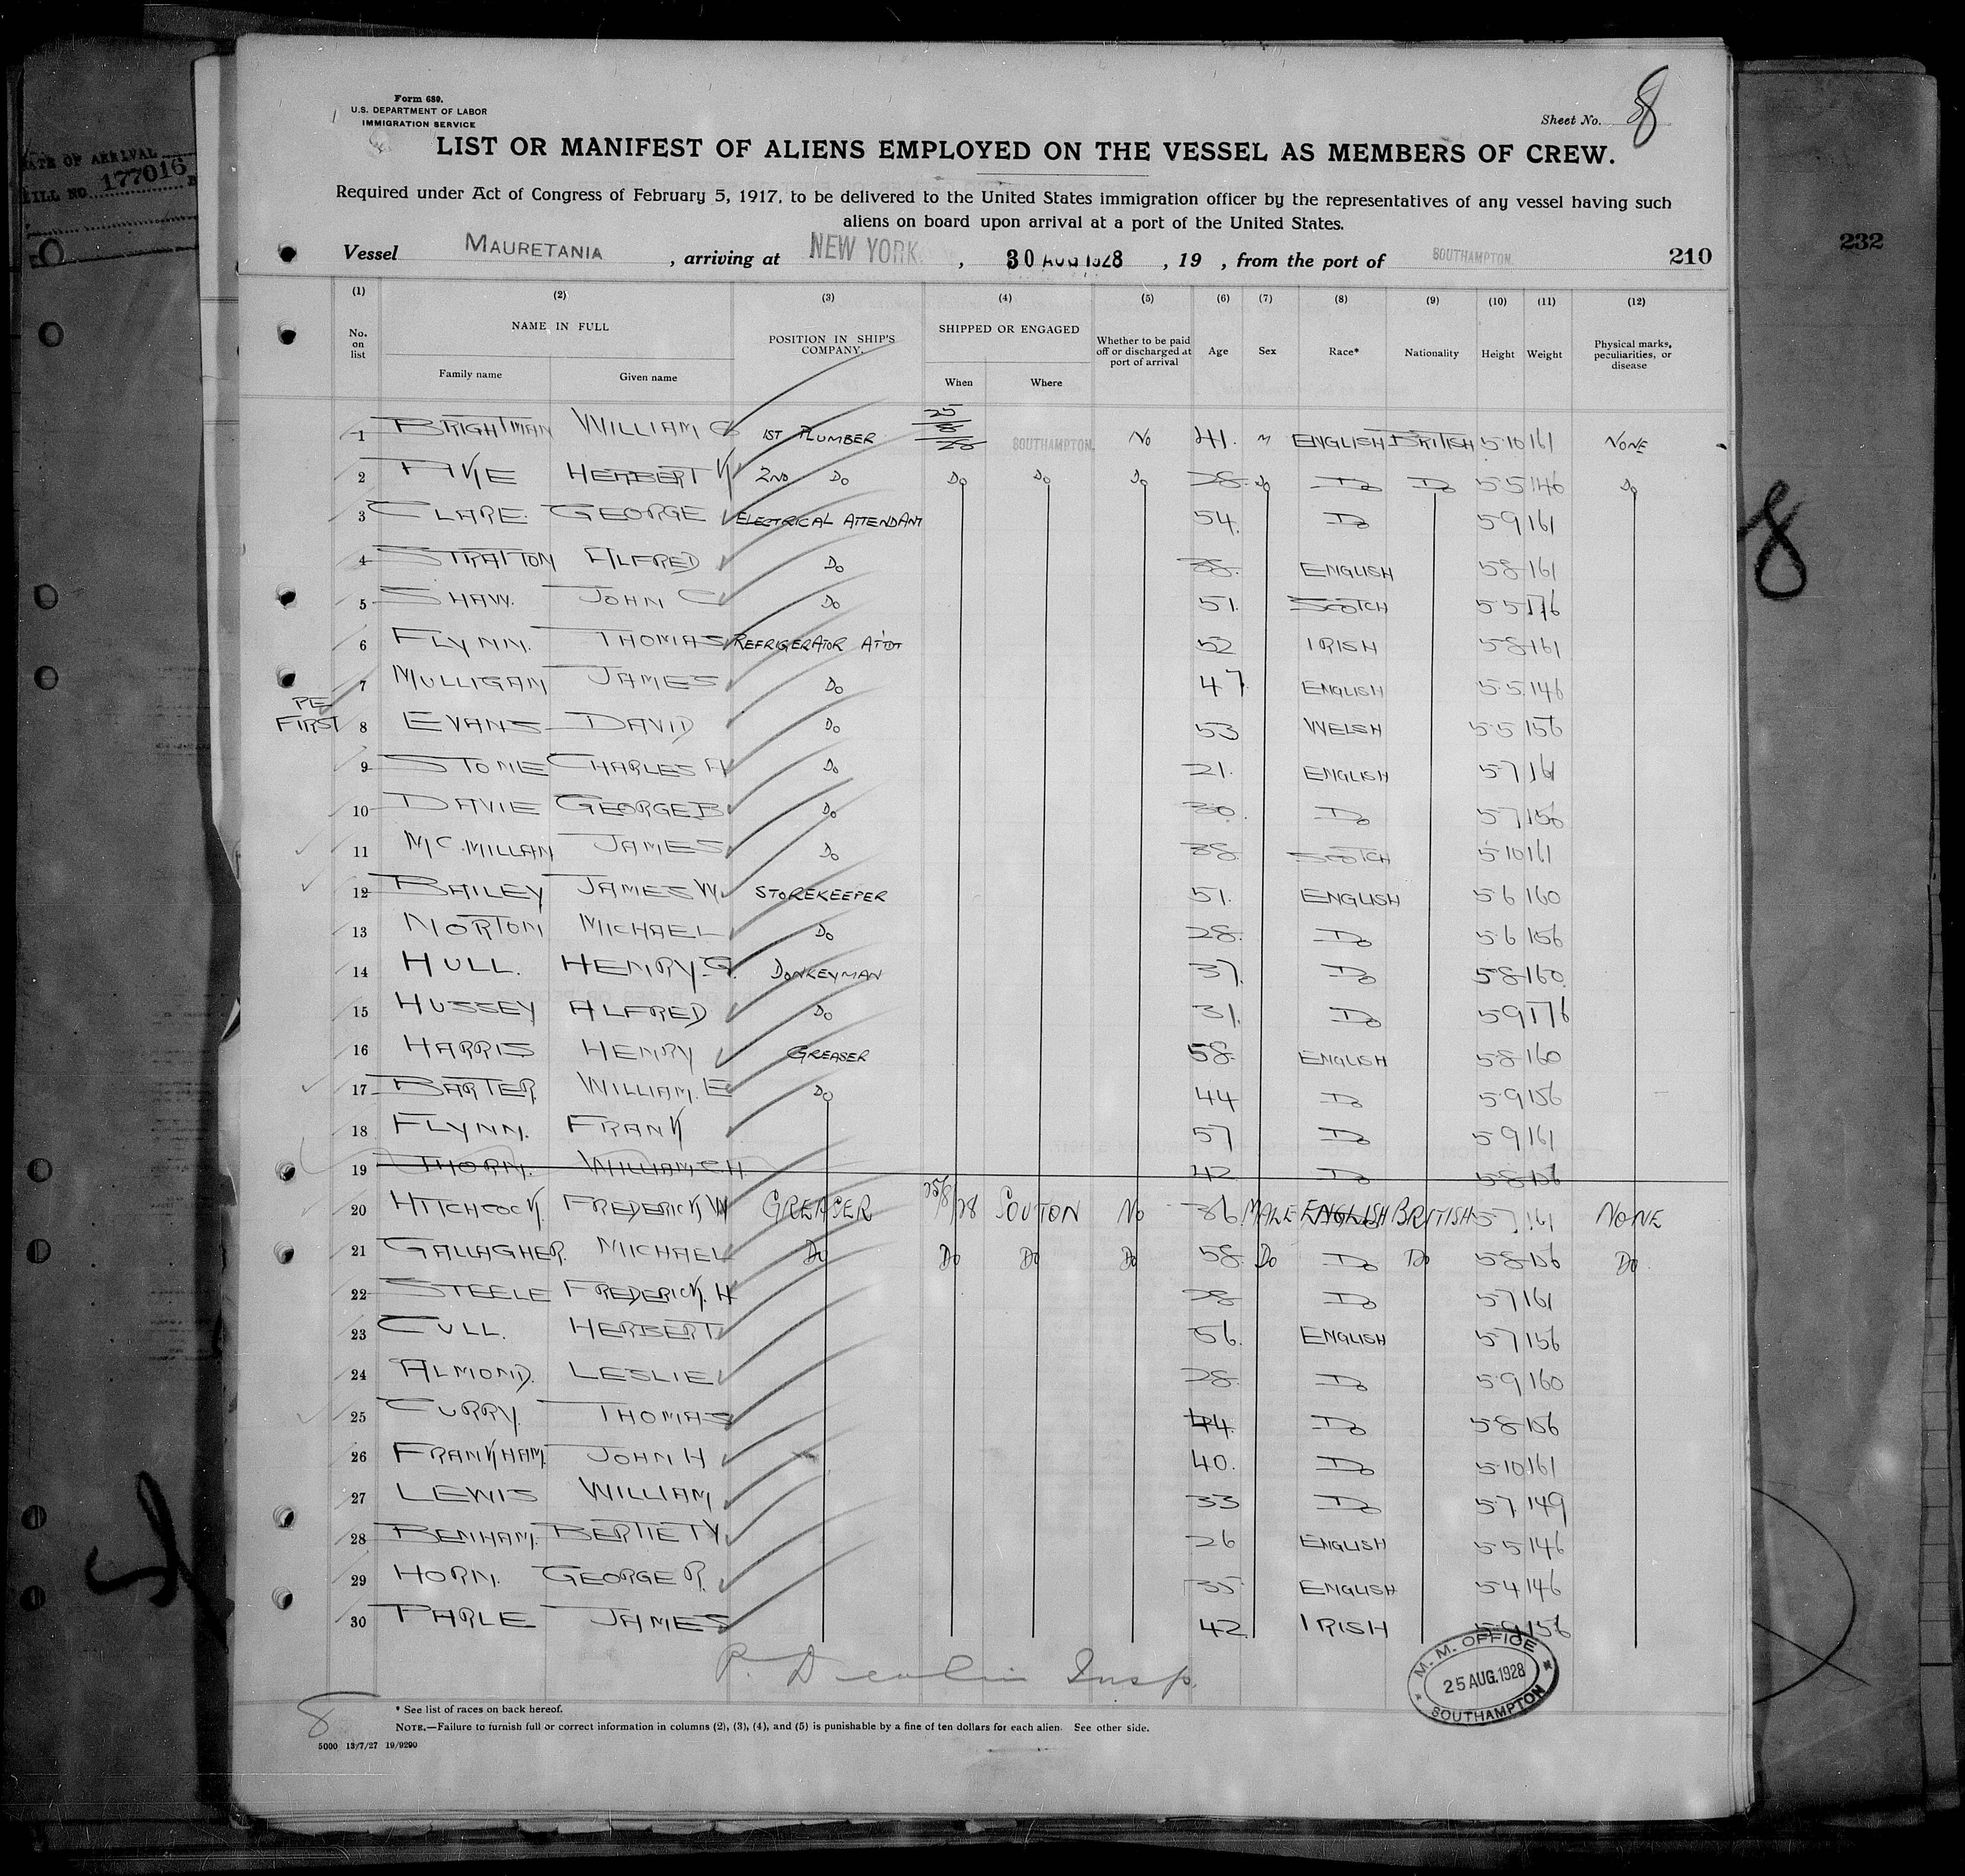 DATE OF ARRIVAL
BILL NO. 177016
Form 680.
U.S. DEPARTMENT OF LABOR
IMMIGRATION SERVICE
Sheet No. 8
LIST OR MANIFEST OF ALIENS EMPLOYED ON THE VESSEL AS MEMBERS OF CREW.
Required under Act of Congress of February 5, 1917, to be delivered to the United States immigration officer by the representatives of any vessel having such
aliens on board upon arrival at a port of the United States.
Vessel MAURETANIA, arriving at NEW YORK, 30 AUG 1928, 19 , from the port of SOUTHAMPTON. 210
232
(1) (2) (3) (4) (5) (6) (7) (8) (9) (10) (11) (12)
No. on list NAME IN FULL Family name Given name POSITION IN SHIP'S COMPANY. SHIPPED OR ENGAGED When Where Whether to be paid off or discharged at port of arrival Age Sex Race* Nationality Height Weight Physical marks, peculiarities, or disease
1 BRIGHTMAN WILLIAM G 1ST PLUMBER 25/8/28 SOUTHAMPTON. NO 41. M ENGLISH BRITISH 5.10 161 NONE
2 PIKE HERBERT K 2ND DO DO DO DO 28. DO DO DO 5.5 146 DO
3 CLARE. GEORGE ELECTRICAL ATTENDANT 54. DO 5.9 161
4 STRATTON ALFRED DO 38. ENGLISH 5.8 161
5 SHAW. JOHN C DO 51. SCOTCH 5.5 176
6 FLYNN. THOMAS REFRIGERATOR AT'DT 52 IRISH 5.8 161
7 MULLIGAN JAMES DO 47. ENGLISH 5.5 146
PE
FIRST
8 EVANS DAVID DO 53 WELSH 5.5 156
9 STONE CHARLES A DO 21. ENGLISH 5.7 161
10 DAVIE GEORGE B DO 30. DO 5.7 156
11 MC.MILLAN JAMES DO 38. SCOTCH 5.10 161
12 BAILEY JAMES W. STOREKEEPER 51. ENGLISH 5.6 160
13 MORTON MICHAEL DO 28. DO 5.6 156
14 HULL. HENRY.G. DONKEYMAN 37. DO 5.8 160
15 HUSSEY ALFRED DO 31. DO 5.9 176
16 HARRIS HENRY GREASER 58. ENGLISH 5.8 160
17 BARTER WILLIAM.E DO 44 DO 5.9 156
18 FLYNN. FRANK 57 DO 5.9 161
19 THORN. WILLIAM C H 42 DO 5.8 156
20 HITCHCOCK. FREDERICK W GREASER 25/8/28 SOUTON NO 36 MALE ENGLISH BRITISH 5.7 161 NONE
21 GALLAGHER. MICHAEL DO DO DO DO 58. DO DO DO 5.8 156 DO
22 STEELE FREDERICK. H 28 DO 5.7 161
23 CULL. HERBERT 56. ENGLISH 5.7 156
24 ALMOND. LESLIE 28. DO 5.9 160
25 CURRY. THOMAS 44. DO 5.8 156
26 FRANKHAM. JOHN H 40. DO 5.10 161
27 LEWIS WILLIAM 33 DO 5.7 149
28 BENHAM. BERTIE 26 ENGLISH 5.5 146
29 HORN. GEORGE R. 35 ENGLISH 5.4 146
30 PARLE JAMES 42 IRISH 5.9 156
Insp.
M. M. OFFICE
25 AUG. 1928
SOUTHAMPTON
8
* See list of races on back hereof.
NOTE.—Failure to furnish full or correct information in columns (2), (3), (4), and (5) is punishable by a fine of ten dollars for each alien. See other side.
5000 13/7/27 19/9290
8